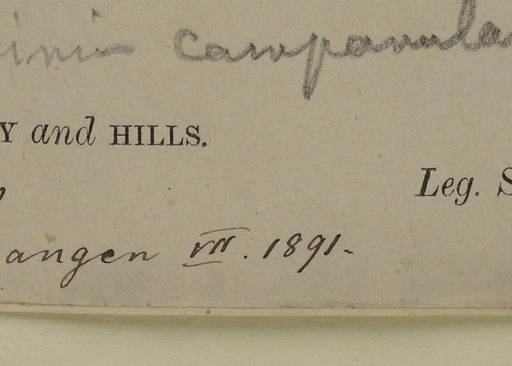 campanula
Y and HILLS.
Leg. S
angen VII. 1891-